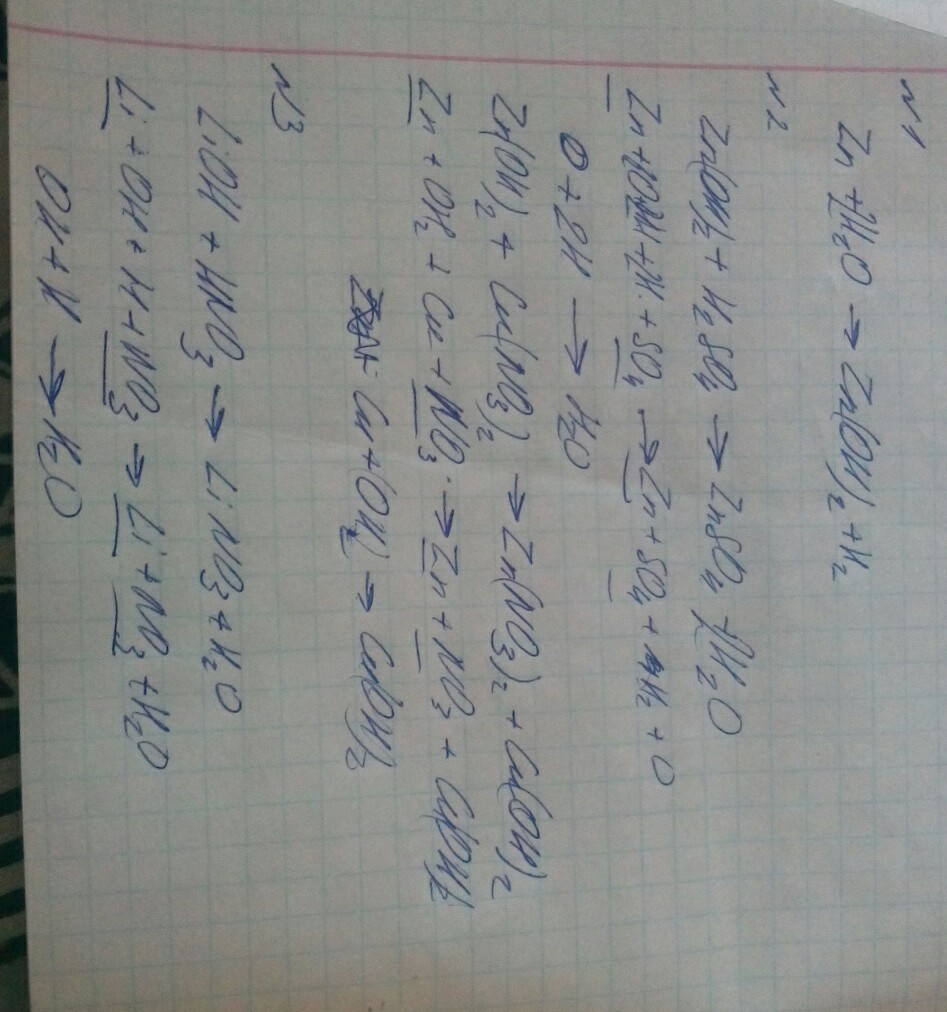 N1
Zn + 2H₂O → Zn(OH)₂ + H₂
N2
Zn(OH)₂ + H₂SO₄ → ZnSO₄ + 2H₂O
Zn + 2H + SO₄ → Zn + SO₄ + H₂ + O
O + 2H → H₂O
Zn(OH)₂ + Cu(NO₃)₂ → Zn(NO₃)₂ + Cu(OH)₂
Zn + OH₂ + Cu + NO₃ → Zn + NO₃ + Cu(OH)₂
Cu + (OH)₂ → Cu(OH)₂
N3
LiOH + HNO₃ → LiNO₃ + H₂O
Li + OH + H + NO₃ → Li + NO₃ + H₂O
OH + H → H₂O